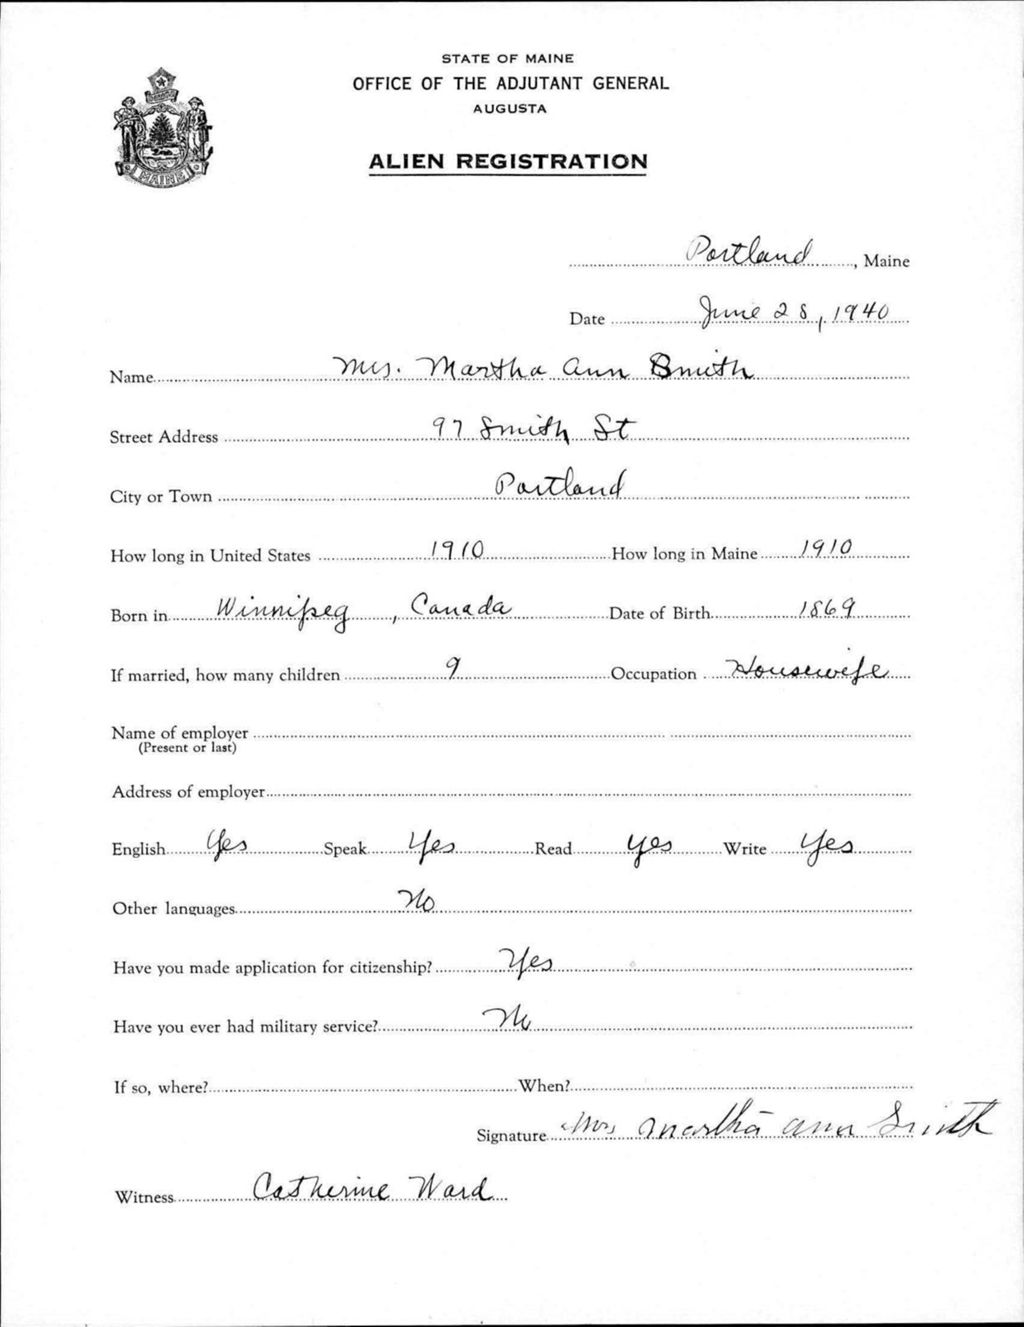 STATE OF MAINE
OFFICE OF THE ADJUTANT GENERAL
AUGUSTA
ALIEN REGISTRATION
MAINE
Portland, Maine
Date June 28, 1940
Name Mrs. Martha Ann Smith
Street Address 97 Smith St
City or Town Portland
How long in United States 1910 How long in Maine 1910
Born in Winnipeg, Canada Date of Birth 1869
If married, how many children 9 Occupation Housewife
Name of employer
(Present or last)
Address of employer
English Yes Speak Yes Read yes Write Yes
Other languages No
Have you made application for citizenship? Yes
Have you ever had military service? No
If so, where? When?
Signature Mrs Martha Ann Smith
Witness Catherine Ward